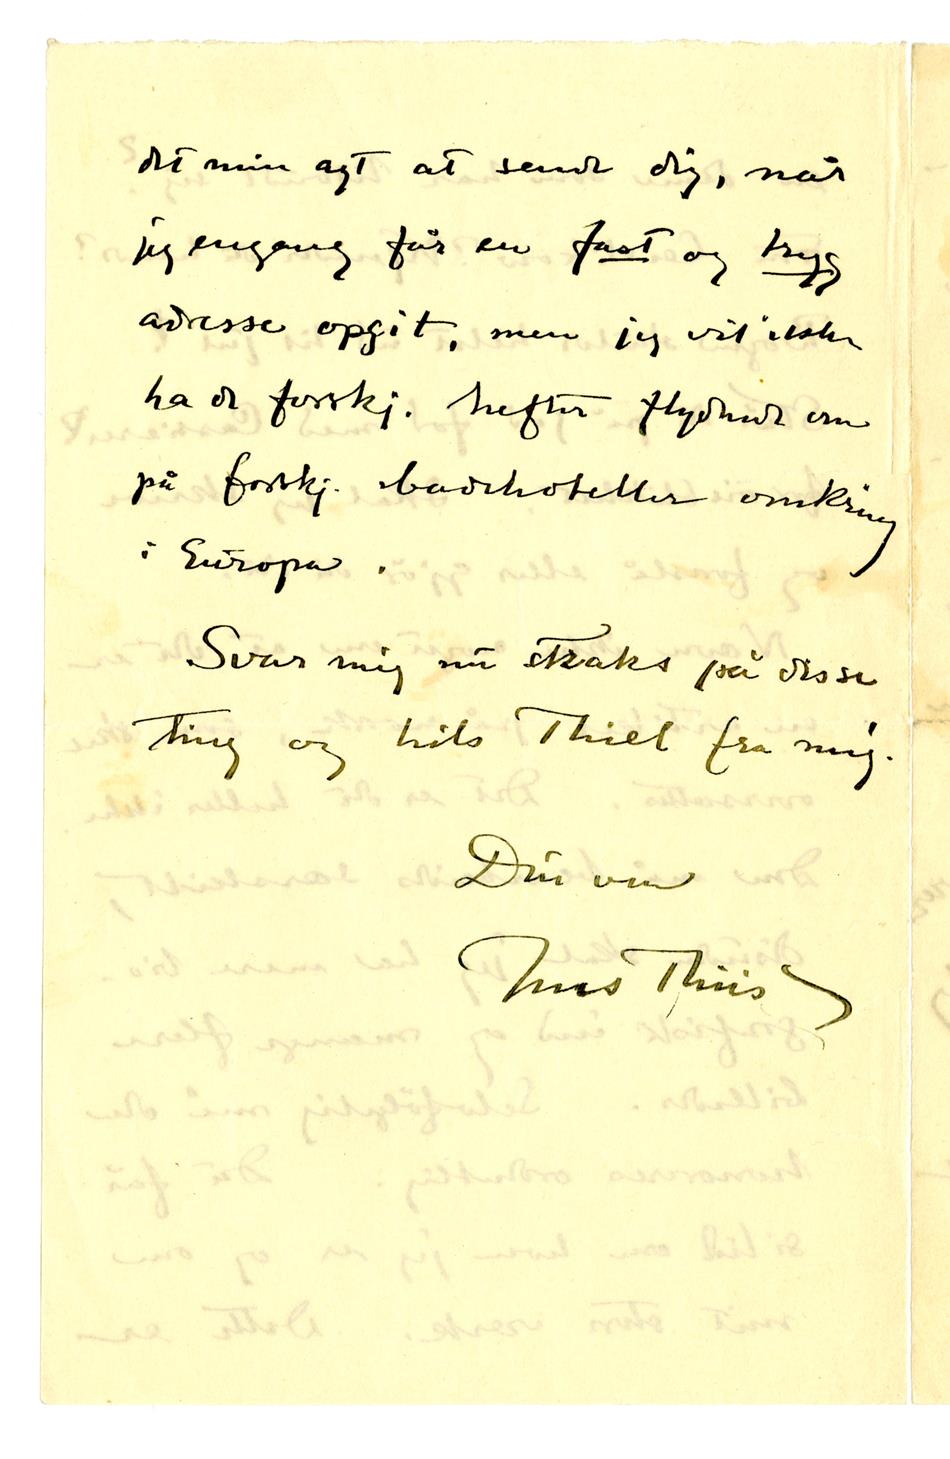 det min agt at sende dig, når
jeg engang får en fast og tryg
adresse opgit, men jeg vil ikke
ha de forskj. hefter flydende om
på forskj. badehoteller omkring
i Europa.
Svar mig nu straks på disse
ting og hils Thiel fra mig.
Din ven
Jens Thiis